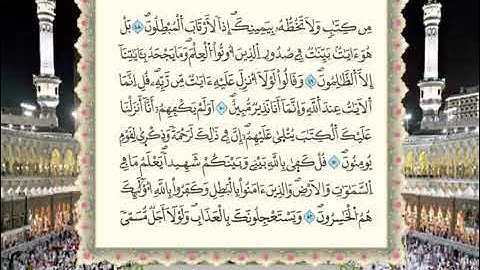 مِن كِتَٰبٖ وَلَا تَخُطُّهُۥ بِيَمِينِكَۖ إِذٗا لَّٱرۡتَابَ ٱلۡمُبۡطِلُونَ ٤٨ بَلۡ
هُوَ ءَايَٰتُۢ بَيِّنَٰتٞ فِي صُدُورِ ٱلَّذِينَ أُوتُواْ ٱلۡعِلۡمَۚ وَمَا يَجۡحَدُ بِـَٔايَٰتِنَآ
إِلَّا ٱلظَّٰلِمُونَ ٤٩ وَقَالُواْ لَوۡلَآ أُنزِلَ عَلَيۡهِ ءَايَٰتٞ مِّن رَّبِّهِۦۚ قُلۡ إِنَّمَا
ٱلۡأٓيَٰتُ عِندَ ٱللَّهِ وَإِنَّمَآ أَنَا۠ نَذِيرٞ مُّبِينٌ ٥٠ أَوَلَمۡ يَكۡفِهِمۡ أَنَّآ أَنزَلۡنَا
عَلَيۡكَ ٱلۡكِتَٰبَ يُتۡلَىٰ عَلَيۡهِمۡۚ إِنَّ فِي ذَٰلِكَ لَرَحۡمَةٗ وَذِكۡرَىٰ لِقَوۡمٖ
يُؤۡمِنُونَ ٥١ قُلۡ كَفَىٰ بِٱللَّهِ بَيۡنِي وَبَيۡنَكُمۡ شَهِيدٗاۖ يَعۡلَمُ مَا فِي
ٱلسَّمَٰوَٰتِ وَٱلۡأَرۡضِۗ وَٱلَّذِينَ ءَامَنُواْ بِٱلۡبَٰطِلِ وَكَفَرُواْ بِٱللَّهِ أُوْلَٰٓئِكَ
هُمُ ٱلۡخَٰسِرُونَ ٥٢ وَيَسۡتَعۡجِلُونَكَ بِٱلۡعَذَابِ وَلَوۡلَآ أَجَلٞ مُّسَمّٗى